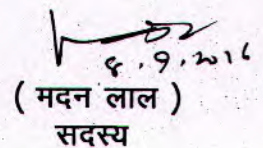 8.9.2016
( मदन लाल )
सदस्य